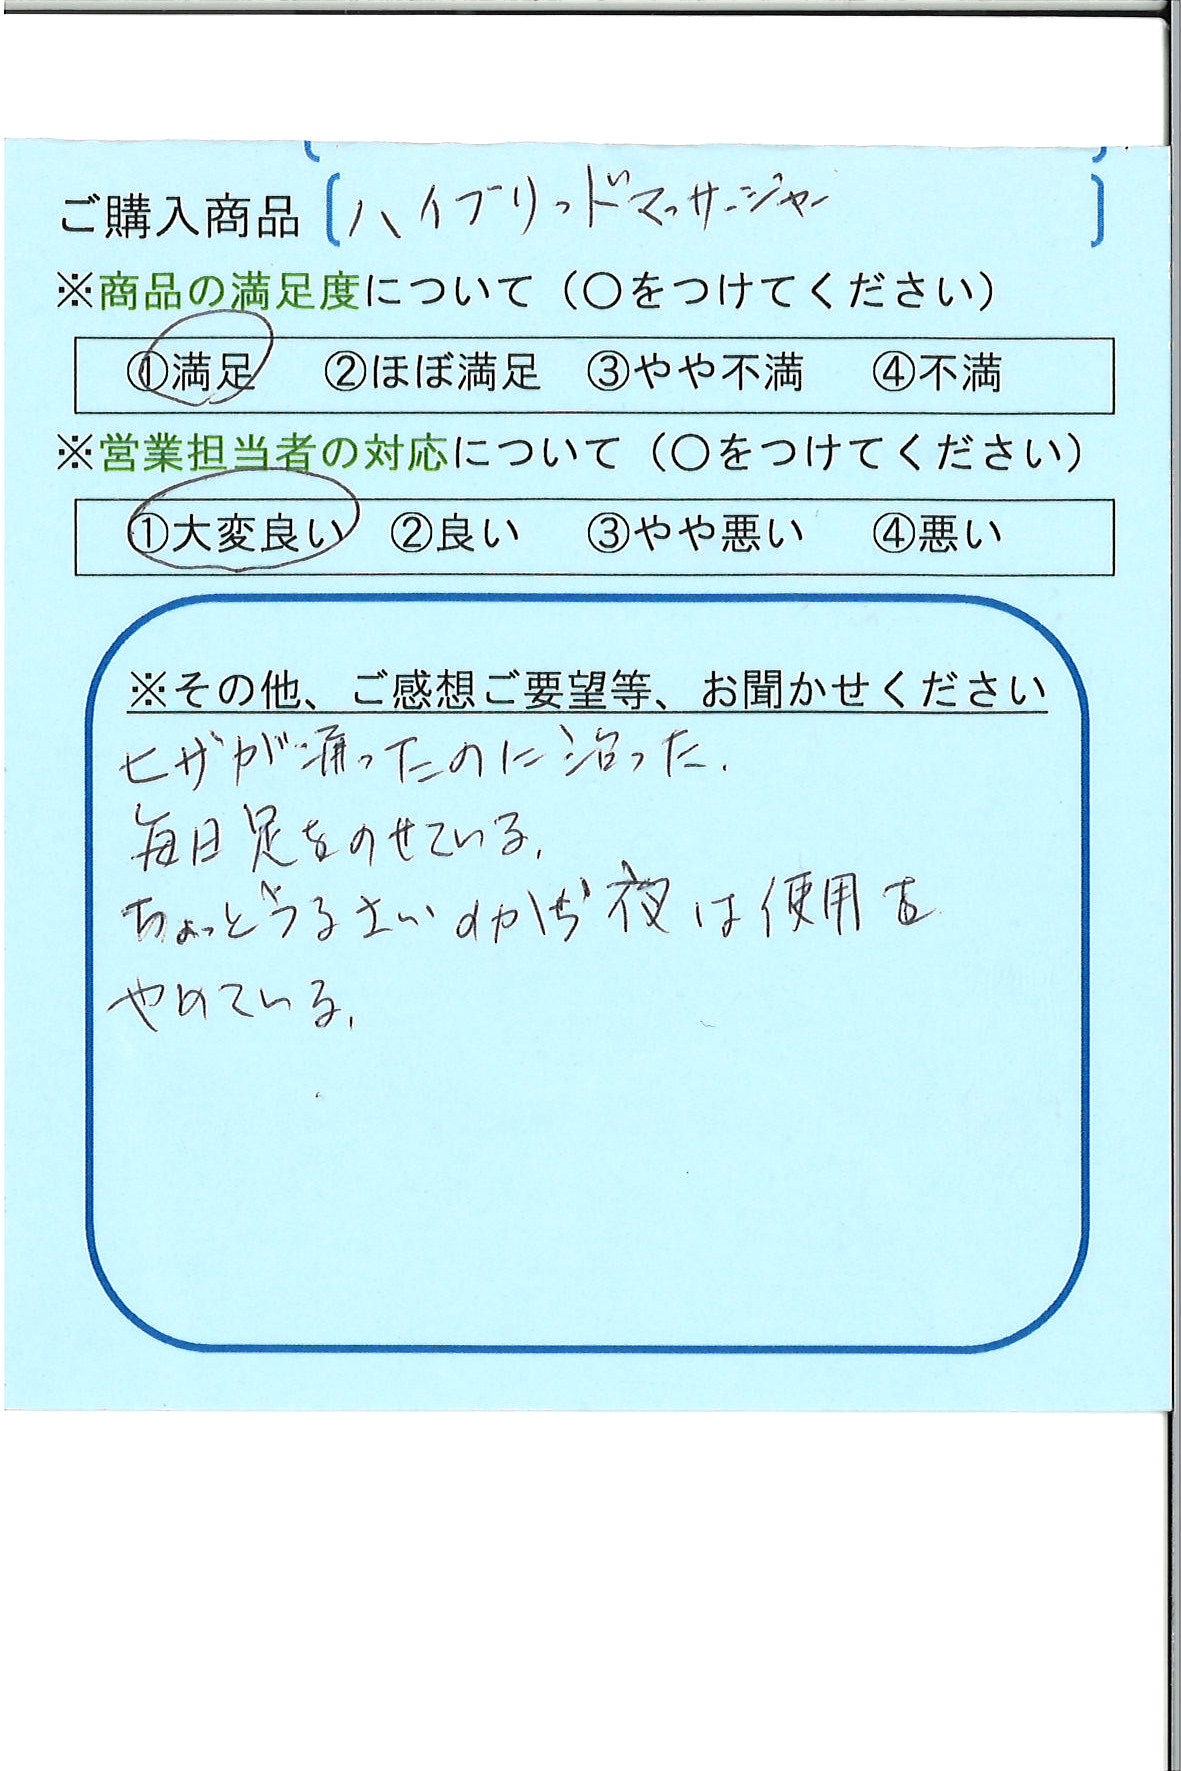 ご購入商品 [ハイブリッドマッサージャー]
※商品の満足度について（○をつけてください）
①満足 ②ほぼ満足 ③やや不満 ④不満
※営業担当者の対応について（○をつけてください）
①大変良い ②良い ③やや悪い ④悪い
※その他、ご感想ご要望等、お聞かせください
ヒザが痛ったのに治った.
毎日足をのせている.
ちょっとうるさい 夜は使用を
やめている.